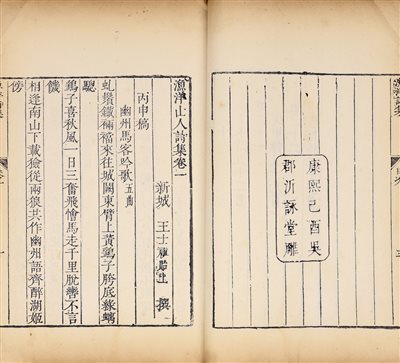 康熙己酉吳
郡沂詠堂雕
漁洋山人詩集卷一
新城 王士 貽上 撰
丙申稿
幽州馬客吟歌五曲
虬鬚鐵裲襠來往城闕東臂上黃鷂子胯底綠螭
驄
鷂子喜秋風一日三奮飛馬走千里脫轡不言
饑
相逢南山下載獫從兩狼共作幽州語齊醉湖姬
傍